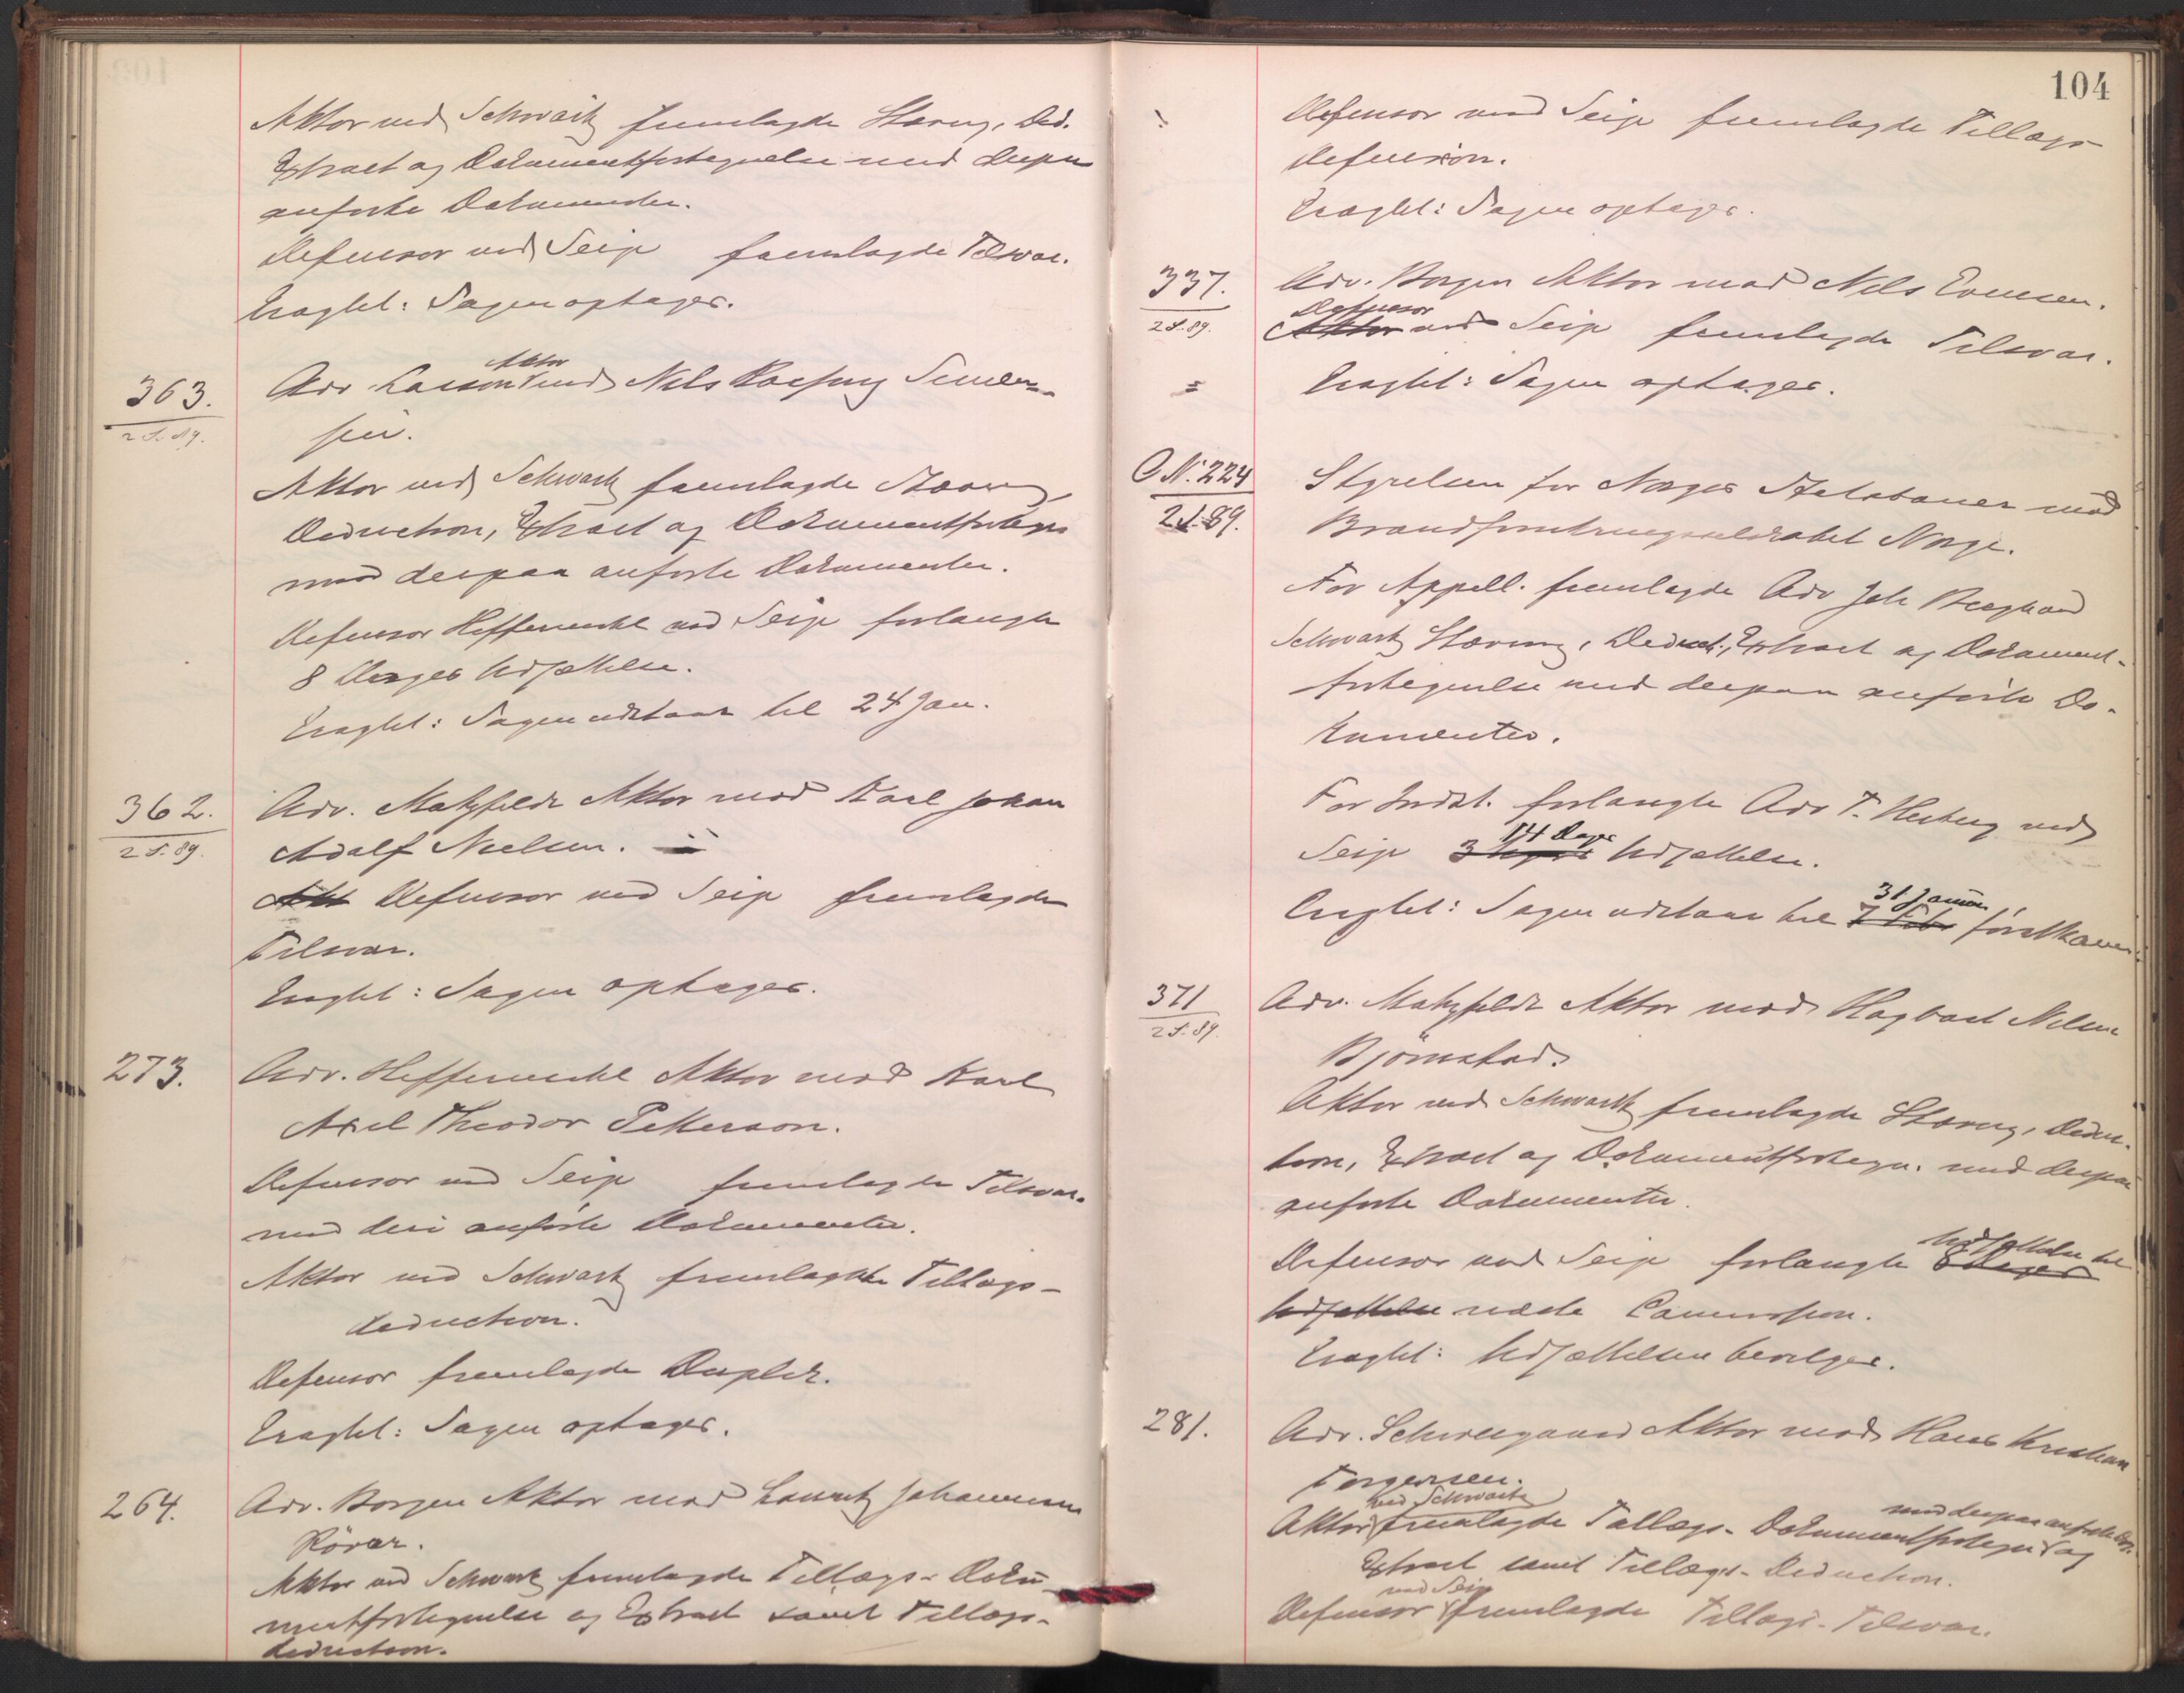 Aktor ved Schwartz fremlagde Stævng, Ded.
Extract og Dokumentfortegnelse med derpaa
anførte Dokumenter.
Defensor ved Seip fremlagde Tilsvar.
Eragtet: Sagen optages.
363.
2 S. 89.
Adv Lasson Aktor mod Nils
sen.
Aktor ved Schwartz fremlagde Stævng,
Deduction, Extract og Dokumentfortegn
med derpaa anførte Dokumenter.
Defensor Heffermehl ved Seip forlangte
8 Dages Udsættelse.
Eragtet: Sagen udstaar til 24 Jan.
362.
2 S. 89.
Adv. Matzfeldt Aktor mod Karl Johan
Adolf Nielsen.
Akt Defensor ved Seip fremlagde
Tilsvar.
Eragtet: Sagen optages.
273.
Adv. Heffermehl Aktor mod Karl
Axel Theodor Petterson.
Defensor ved Seip fremlagde Tilsvar
med deri anførte Dokumenter.
Aktor ved Schwartz fremlagde Tillægs-
deduction.
Defensor fremlagde Duplik.
Eragtet: Sagen optages.
264.
Adv. Borgen Aktor mod Lauritz Johannesen
Rövær.
Aktor ved Schwartz fremlagde Tillægs-Doku-
mentfortegnelse og Extract samt Tillægs-
deduction.
104
Defensor ved Seip fremlagde Tillægs-
defension.
Eragtet: Sagen optages.
337.
2 S. 89.
Adv. Borgen Aktor mod Nils Evensen.
Defensor
Aktor ved Seip fremlagde Tilsvar.
Eragtet: Sagen optages.
O N. 224
2 S. 89.
Styrelsen for Norges Statsbaner mod
Brandforsikringsselskabet Norge.
For Appell. fremlagde Adv Joh Bergh ved
Schwartz Stævning, Deduct., Extract og Dokument-
fortegnelse med derpaa anførte Do-
kumenter.
For Indst. forlangte Adv T. Herberg ved
14 Dages
Seip 3 Ugers Udsættelse.
31 Januar
Eragtet: Sagen udstaar til 7 Feb førstkom.
371
2 S. 89.
Adv. Matzfeldt Aktor mod Hagbart Nilsen
Bjørnstad.
Aktor ved Schwartz fremlagde Stævng, Deduc-
tion, Extract og Dokumentfortegn. med derpaa
anførte Dokumenter.
Udsættelse til
Defensor ved Seip forlangte 8 Dages
Udsættelse næste Session.
Eragtet: Udsættelsen bevilges.
281.
Adv. Schweigaard Aktor mod Hans Kristian
Torgersen.
ved Schwartz med derpaa anførte Dok.
Aktor fremlagde Tillægs-Dokumentfortegn og
Extract samt Tillægs-Deduction.
ved Seip
Defensor fremlagde Tillægs-Tilsvar.